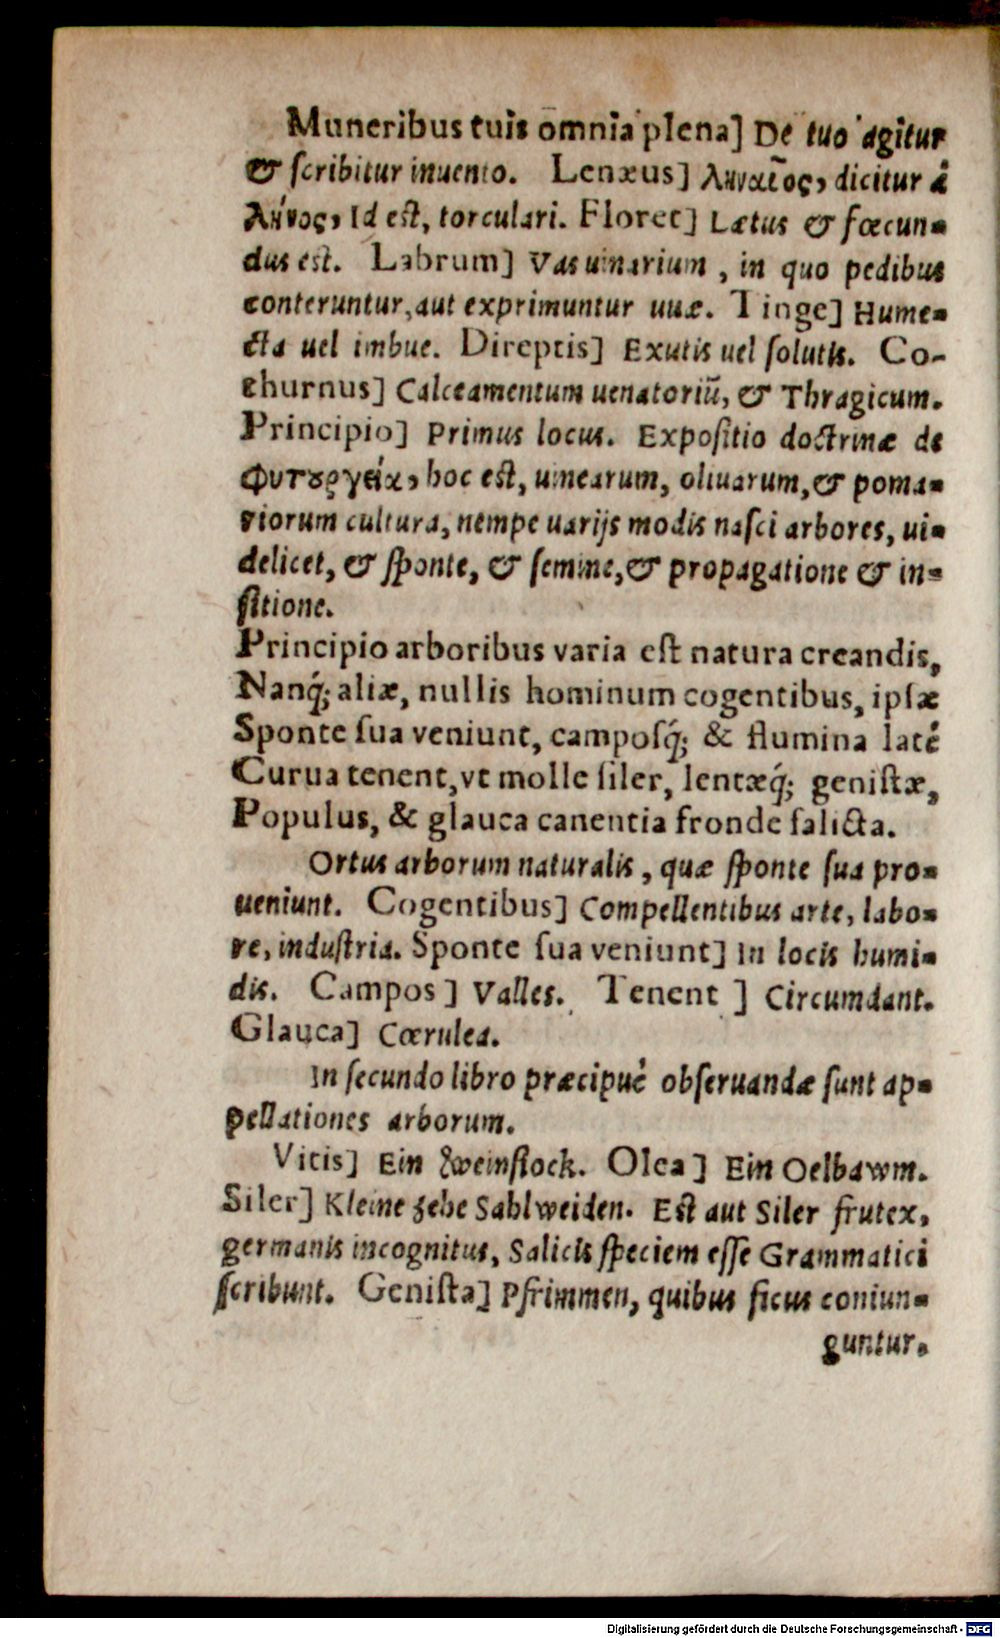 Muneribus tuis omnia plena] De tuo agitur
& ſcribitur inuento. Lenæus] ληναῖος, dicitur à
λήνος, Id eſt, torculari. Floret] Lætus & fœcun-
dus eſt. Labrum] Vas uinarium, in quo pedibus
conteruntur, aut exprimuntur uuæ. Tinge] Hume-
cta uel imbue. Direptis] Exutis uel ſolutis. Co-
thurnus] Calceamentum uenatoriũ, & Thragicum.
Principio] Primus locus. Expoſitio doctrinæ de
φυτουργείᾳ, hoc eſt, uinearum, oliuarum, & poma-
riorum cultura, nempe uarijs modis naſci arbores, ui-
delicet, & ſponte, & ſemine, & propagatione & in-
ſitione.
Principio arboribus varia eſt natura creandis,
Nanq́; aliæ, nullis hominum cogentibus, ipſæ
Sponte ſua veniunt, campoſq́; & flumina latè
Curua tenent, vt molle ſiler, lentæq́; geniſtæ,
Populus, & glauca canentia fronde ſalicta.
Ortus arborum naturalis, quæ ſponte ſua pro-
ueniunt. Cogentibus] Compellentibus arte, labo-
re, induſtria. Sponte ſua veniunt] In locis humi-
dis. Campos] Valles. Tenent] Circumdant.
Glauca] Cœrulea.
In ſecundo libro præcipuè obſeruandæ ſunt ap-
pellationes arborum.
Vitis] Ein Zweinſtock. Olea] Ein Oelbawm.
Siler] Kleine zehe Sahlweiden. Eſt aut Siler frutex,
germanis incognitus, Salicis ſpeciem eſſe Grammatici
ſcribunt. Geniſta] Pfrimmen, quibus ficus coniun-
guntur.
Digitalisierung gefördert durch die Deutsche Forschungsgemeinschaft - DFG